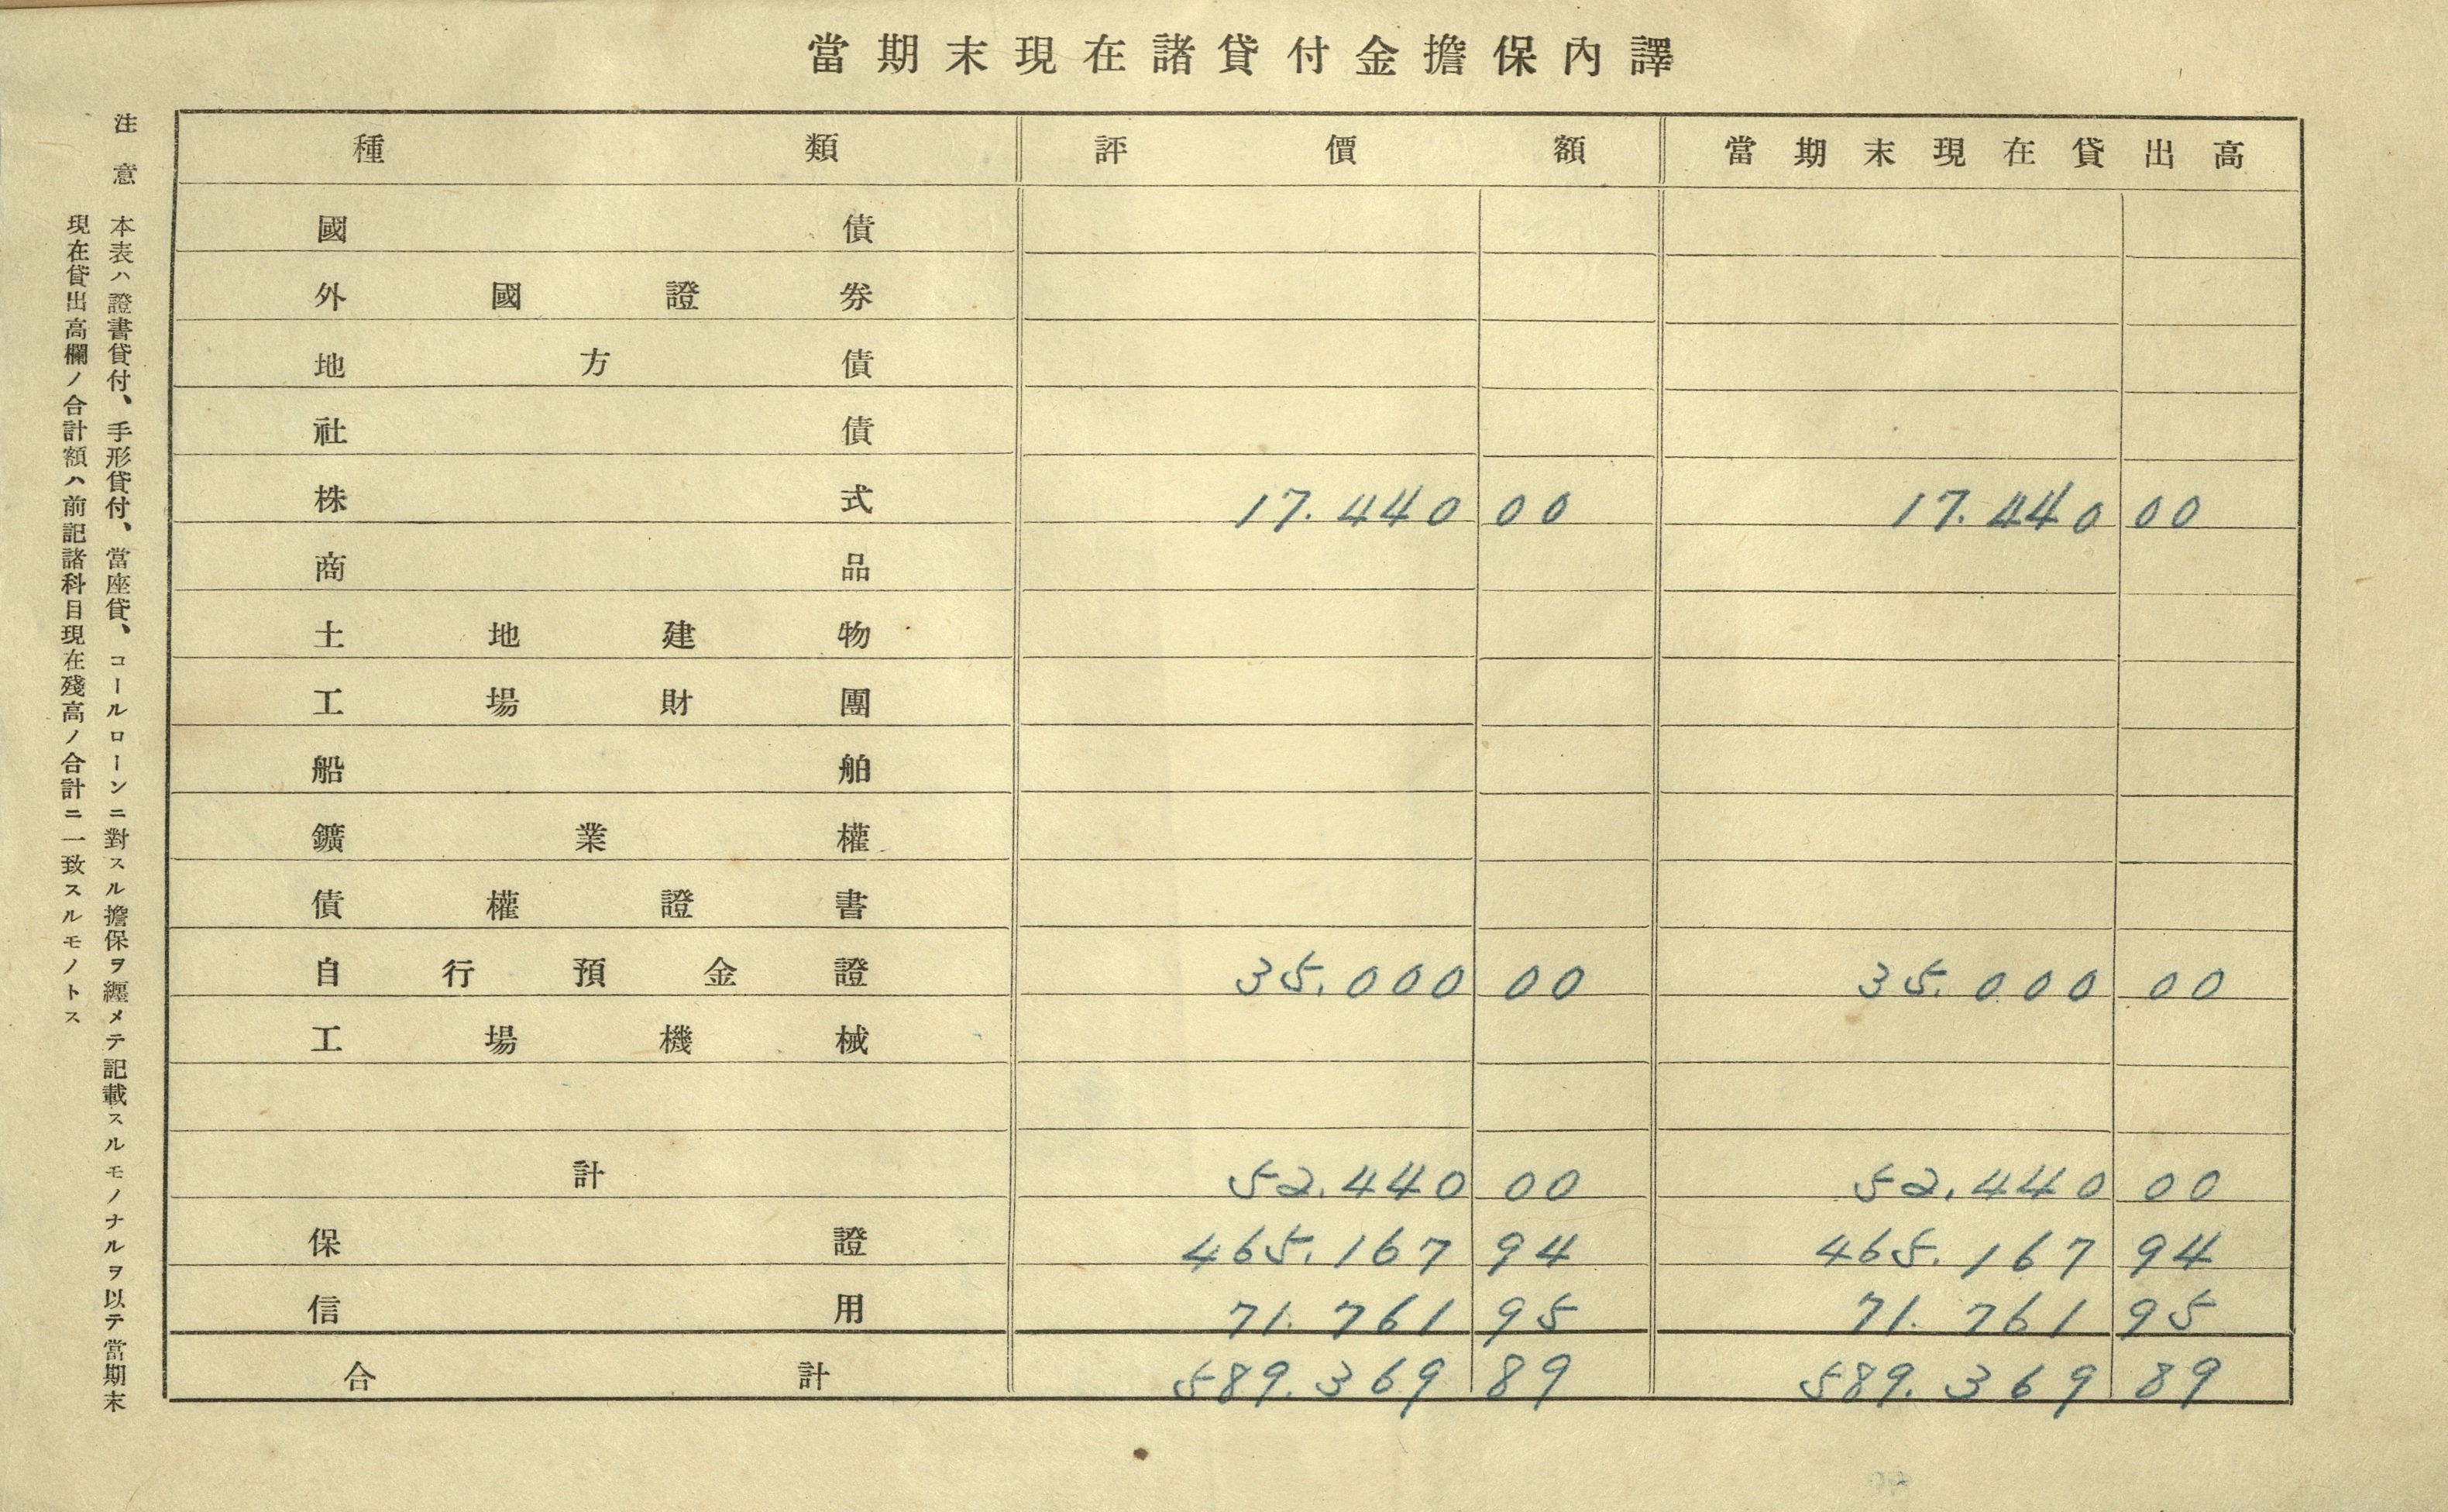 當期末現在諸貸付金擔保內譯
種類 評價額 當期末現在貸出高
國債
外國證券
地方債
社債
株式 17.440 00 17.440 00
商品
土地建物
工場財團
船舶
鑛業權
債權證書
自行預金證 35.000 00 35.000 00
工場機械
計 52.440 00 52.440 00
保證 465.167 94 465.167 94
信用 71.761 95 71.761 95
合計 589.369 89 589.369 89
注意 本表ハ證書貸付、手形貸付、當座貸、コールローンニ對スル擔保ヲ纒メテ記載スルモノナルヲ以テ當期末
現在貸出高欄ノ合計額ハ前記諸科目現在殘高ノ合計ニ一致スルモノトス